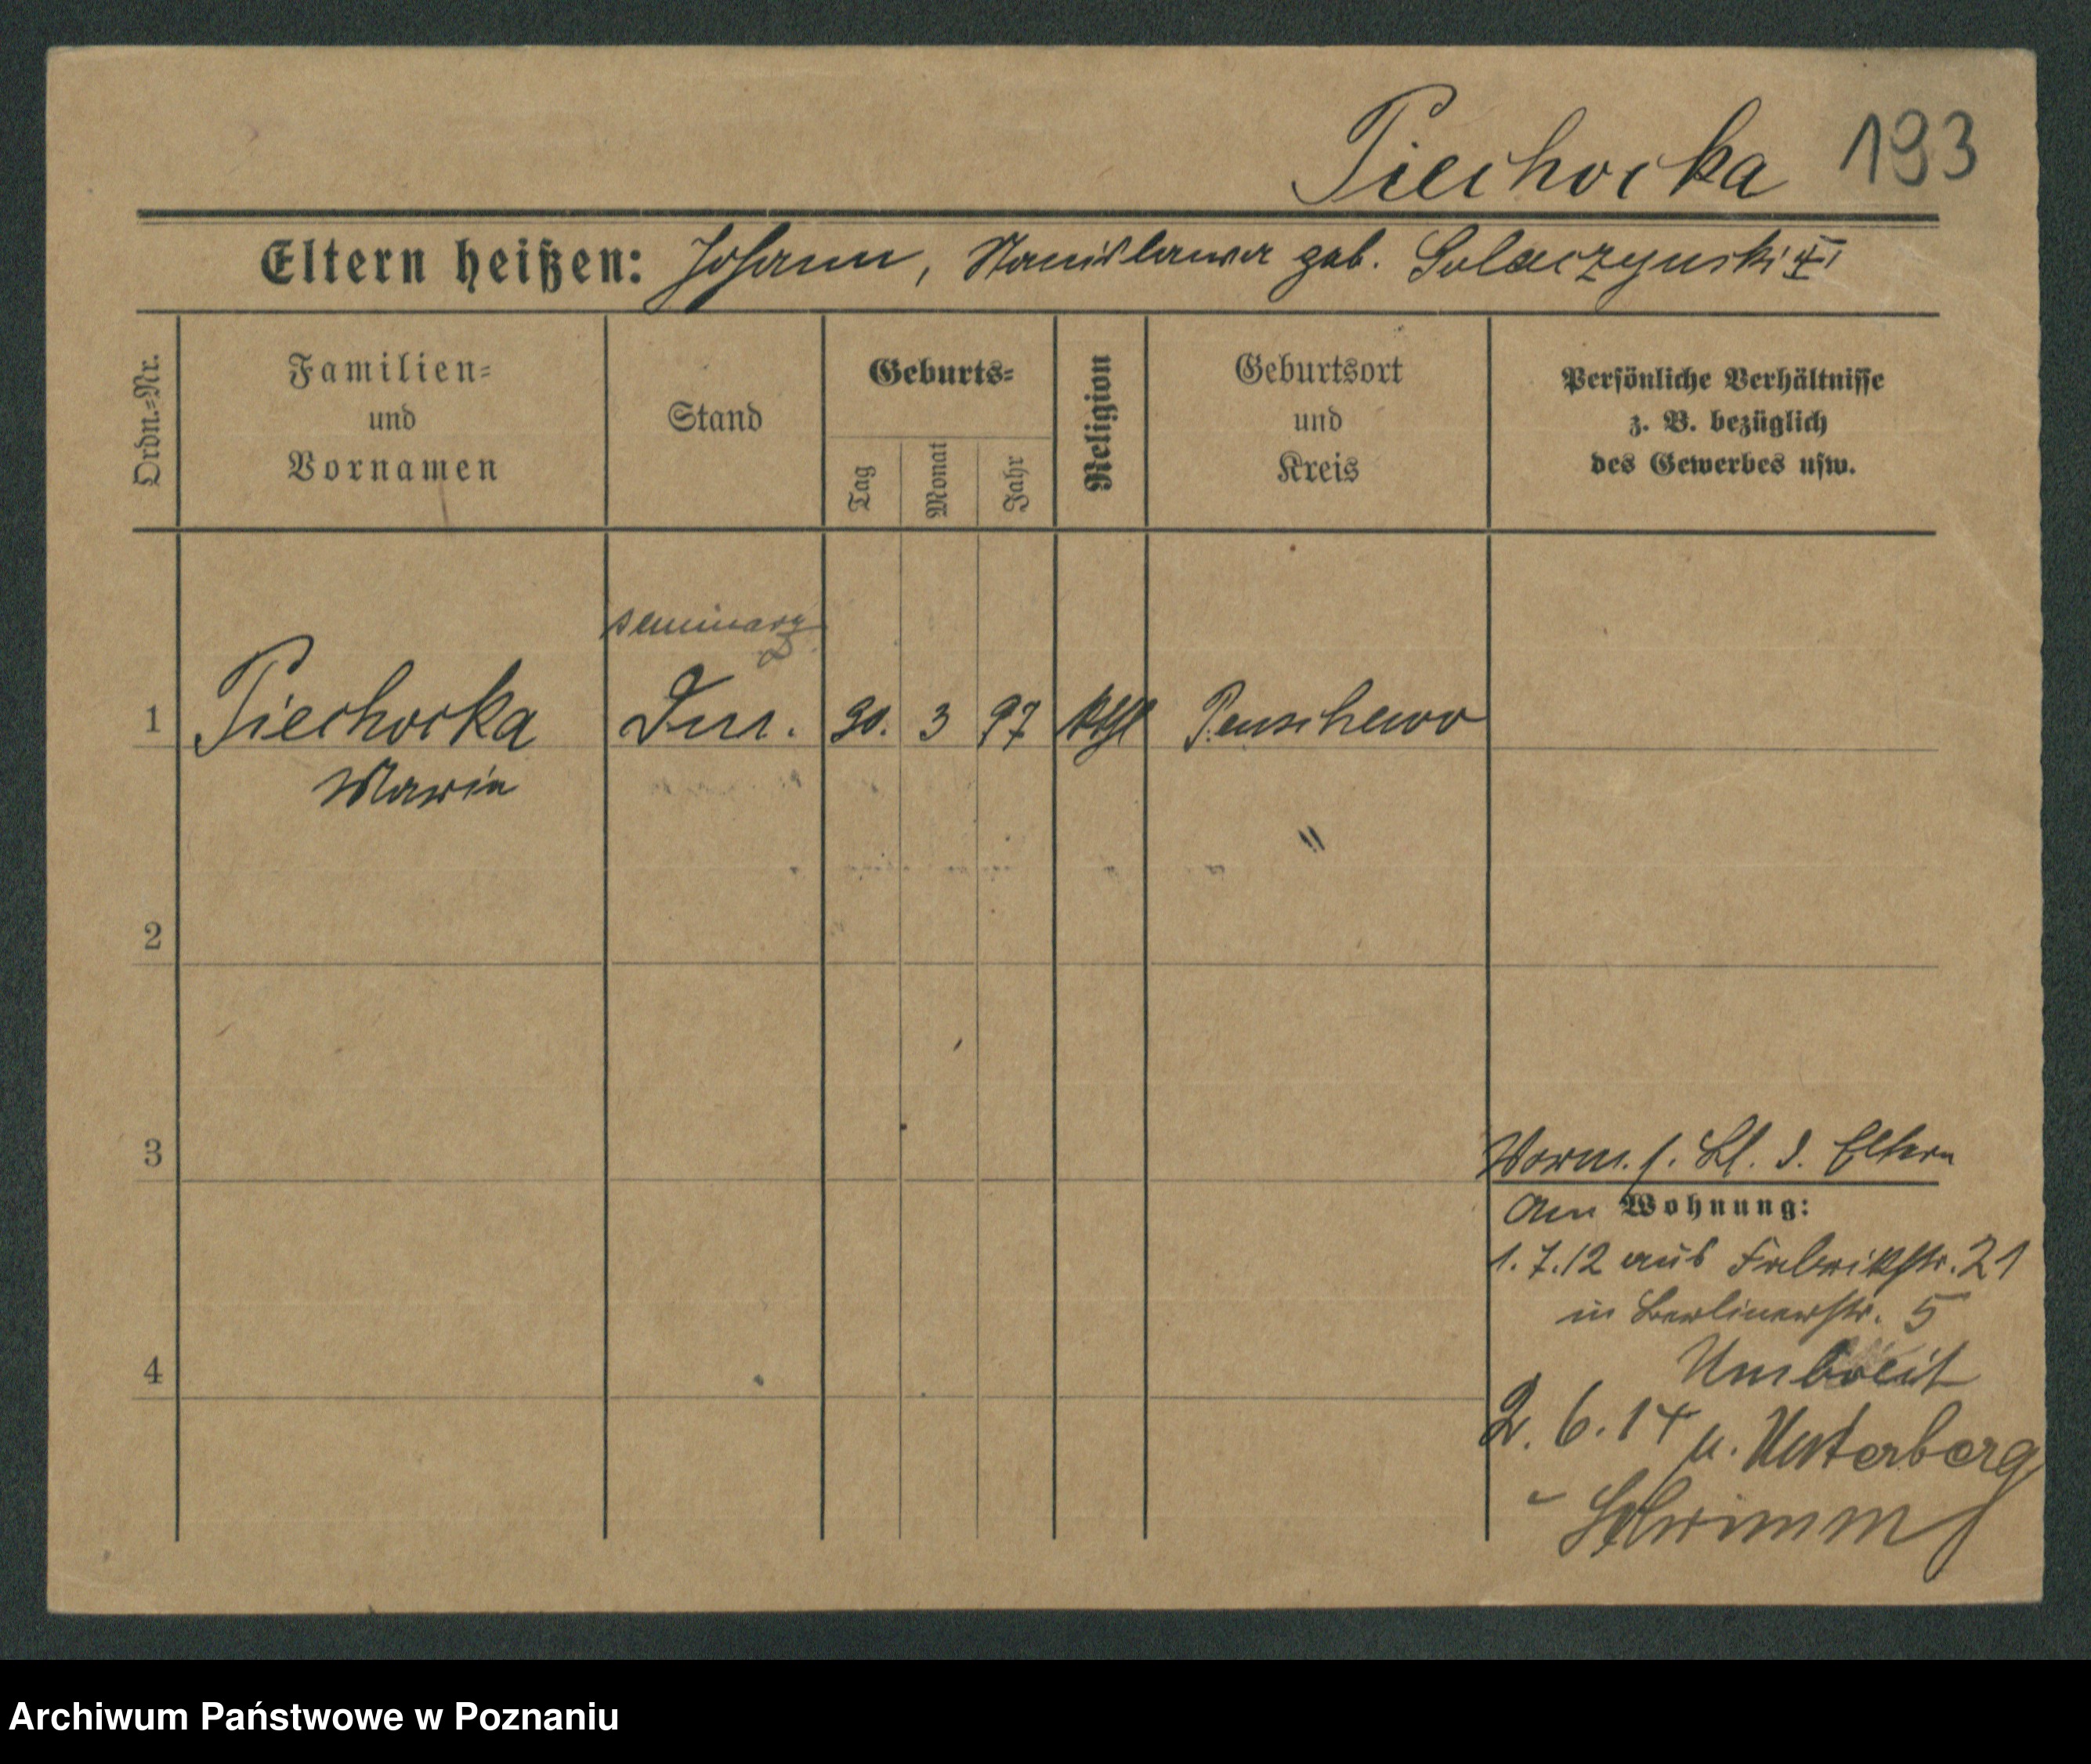 Piechocka 193
Eltern heißen: Johann, Stanislawa geb.
Ordn.=Nr.
Familien=
und
Vornamen
Stand
Geburts=
Tag
Monat
Jahr
Religion
Geburtsort
und
Kreis
Persönliche Verhältnisse
z. B. bezüglich
des Gewerbes usw.
1 Piechocka 30. 3 97 kthl
Maria
"
2
3
4
Vorm. s. Bl. d. Eltern
Wohnung:
1. 7. 12 aus Fabrikstr. 21
in Berlinerstr. 5
Umbreit
2. 6. 14 n. Unterberg
Schrimm
Archiwum Państwowe w Poznaniu